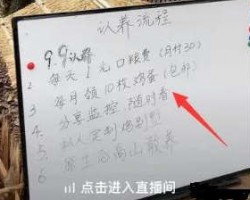 认养流程
9.9认养
1 每天1元口粮费(月付30)
2 每月领10枚鸡蛋(包邮)
3
4 分享监控 随时看
5 私人定制鸡别墅
6 原生态高山散养
点击进入直播间